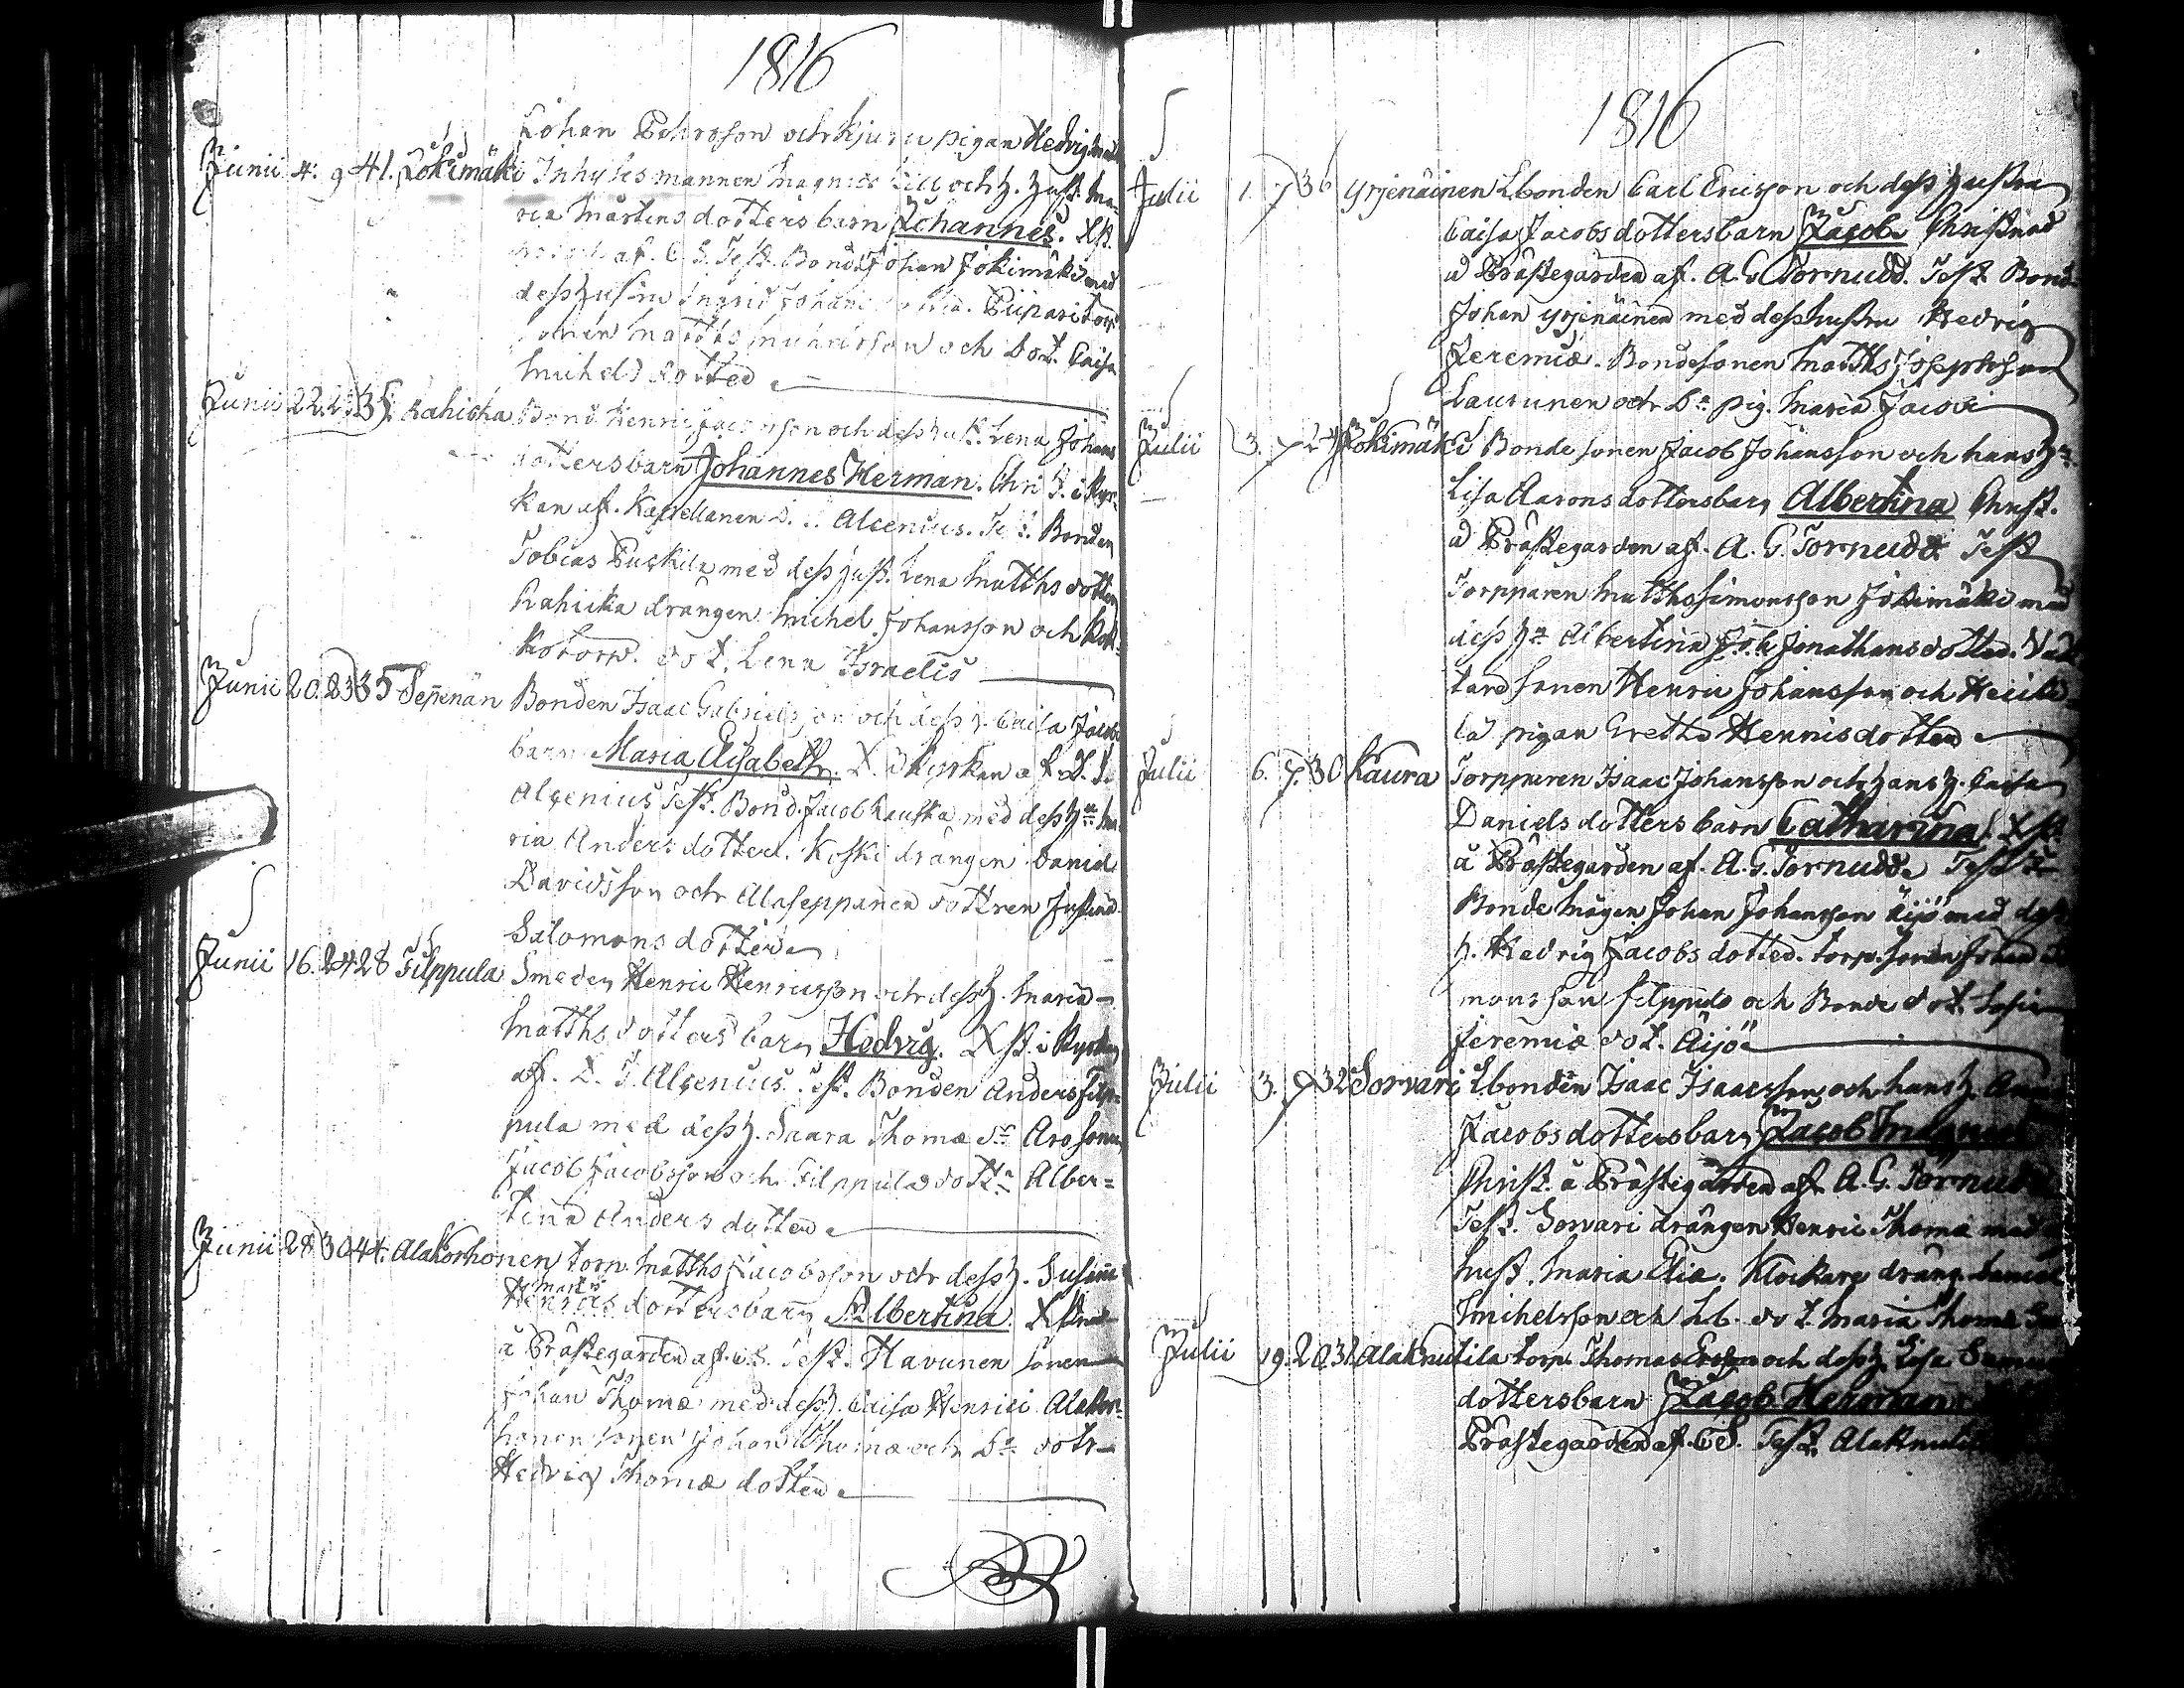 1816
Johan Pehrsson och Kjuru pigan Hedvig
Junii 4. 9 41. Jokimäki Inhyses mannen Magnus och h. Hust. Ma-
ria Mårtens dotters barn Johannes. Xst.
af. C. S. Test. Bond. Johan Jokimäki med
dess hustru Ingrid Johans Piipari torp.
sonen Matths och dot. Caisa
Michels dotter
Junii 22. 23 35. Rahicka Bond. Henric Jacobsson och dess hust. Lena Johans
dotters barn Johannes Herman. Chri st. i Kyr-
kan af. Kapellanen D. Alcenius. Test. Bonden
Tobias Puskila med dess hust. Lena Matths dotter
Rahicka drängen Michel Johansson och
Kotorp. dot. Lena Israelis
Junii 20. 23 35 Seppenän Bonden Isaac Gabrielsson och dess h. Caisa Jacobs
barn Maria Elisabeth. X. i Kyrkan af D. J.
Alcenius Test. Bond. Jacob Kauska med dess h:u Ma
ria Anders dotter. Koski drängen Daniel
Davidsson och Alaseppänen dottren Justina
Salomons dotter
Junii 16. 24 28 Filppula Smeden Henric Henricsson och dess h. Maria
Matths dotters barn Hedvig. Xst. i Kyrkan
af. D. J. Alcenius. Test. Bonden Anders Filp-
pula med dess h. Saara Thomæ dr Aro sonen
Jacob Jacobsson och Filppula dottr Alber-
tina Anders dotter
Junii 28 30 44. Alakorhonen torp. Matths Jacobsson och dess h. Susanna
Matts
Henrics dotters barn Albertina. Xstnad
å Prästegården af. C. S. Test. Havunen sonen
Johan Thomæ med dess h. Caisa Henrici Alakor-
honen sonen Johan Thomæ och Bde dotr
Hedvig Thomæ dotter
1816
Julii 1. 7 36 Yrjenäinen Lbonden Carl Ericsson och dess hustru
Caisa Jacobs dotters barn Jacob Christnad
å Prästegården af. A. G. Tornudd. Test. Bond.
Johan Yrjenäinen med dess hustru Hedvig
Jeremiæ. Bondesonen Matths Josephsson
Laurunen och Bde pig. Maria Jacobi
Julii 3. 7 24 Jokimäki Bonde sonen Jacob Johansson och hans h:u
Lisa Aarons dotters barn Albertina Christ.
å Prästegården af. A. G. Tornudd Test
Torpparen Matths Simonsson Jokimäki med
dess h:u Albertina Jonathans dotter.
tare sonen Henric Johansson och Heicki-
la pigan Greta Henrics dotter
Julii 6. 7. 30 Kaura Torpparen Isaac Johansson och hans h. Caisa
Daniels dotters barn Catharina. Xst.
å Prästegården af. A. G. Tornudd. Test
Bonde mågen Johan Johansson Äijö med dess
h. Hedvig Jacobs dotter. torp. sonen Johan Si
monsson Filppula och Bonde dot. Sofia
Jeremiæ dot. Äijö
Julii 3. 7 32 Sorvari Lbonden Isaac Isaacsson och hans h. Anna
Jacobs dotters barn Jacob Magnus
Christ. å Prästegården af. A. G. Tornudd
Test. Sorvari drängen Henric Thomæ med
hust. Maria Eliæ. Klockare dräng. Daniel
Michelsson och Lb. dot. Maria Thomæ
Julii 19. 20 31 Alaknutila torp. Thomas och dess h. Lisa
dotters barn Jacob Herman
Prästegården af. C S. Test. Alaknutila